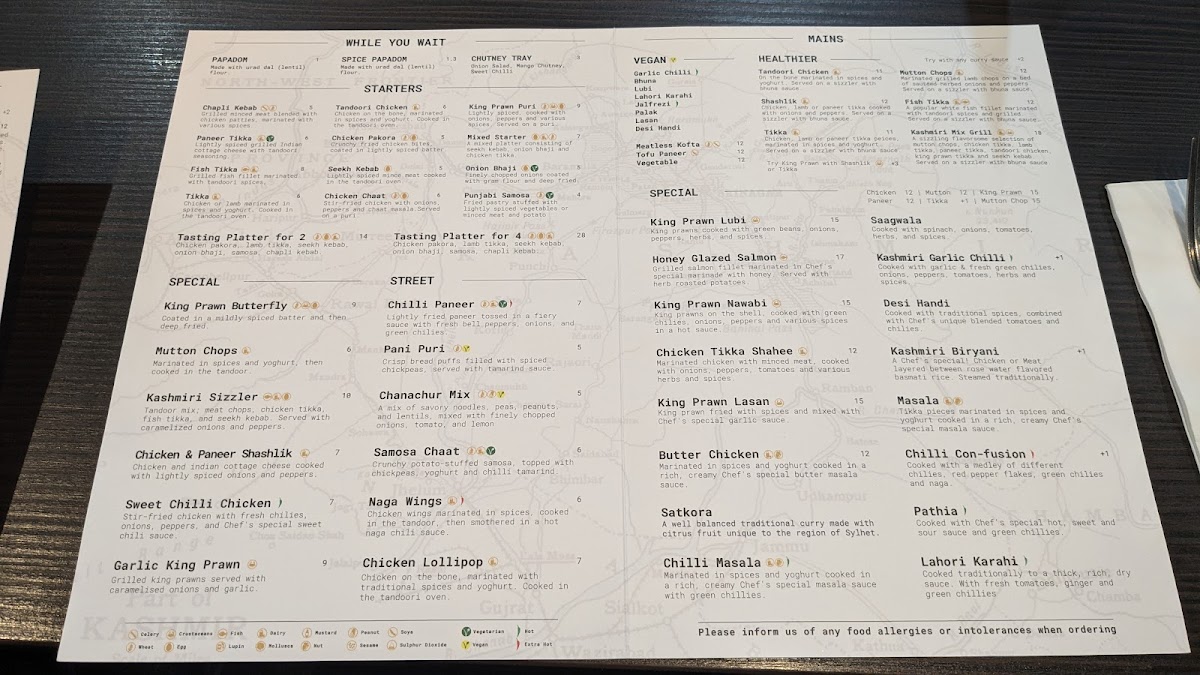 WHILE YOU WAIT
PAPADOM 1
Made with urad dal (lentil)
flour.
SPICE PAPADOM 1.3
Made with urad dal (lentil)
flour.
CHUTNEY TRAY 3
Onion Salad, Mango Chutney,
Sweet Chilli
STARTERS
Chapli Kebab 5
Grilled minced meat blended with
chicken patties, marinated with
various spices
Tandoori Chicken 6
Chicken on the bone, marinated
in spices and yoghurt. Cooked in
the tandoori oven.
King Prawn Puri 9
Lightly spiced, cooked with
onions, peppers and various
spices. Served on a puri.
Paneer Tikka 6
Lightly spiced grilled Indian
cottage cheese with tandoori
seasoning
Chicken Pakora 5
Crunchy fried chicken bites
coated in lightly spiced batter
Mixed Starter 7
A mixed platter consisting of
seekh kebab, onion bhaji and
chicken tikka.
Fish Tikka 6
Grilled fish fillet marinated
with tandoori spices.
Seekh Kebab 5
Lightly spiced mince meat cooked
in the tandoori oven
Onion Bhaji 5
Finely chopped onions coated
with gram flour and deep fried
Tikka 6
Chicken or lamb marinated in
spices and yoghurt. Cooked in
the tandoori oven
Chicken Chaat 6
Stir-fried chicken with onions,
peppers and chaat masala.Served
on a puri
Punjabi Samosa 4
Fried pastry stuffed with
lightly spiced vegetables or
minced meat and potato
Tasting Platter for 2 14
Chicken pakora, lamb tikka, seekh kebab,
onion bhaji, samosa, chapli kebab.
Tasting Platter for 4 28
Chicken pakora, lamb tikka, seekh kebab,
onion bhaji, samosa, chapli kebab.
SPECIAL
King Prawn Butterfly 9
Coated in a mildly spiced batter and then
deep fried.
Mutton Chops 6
Marinated in spices and yoghurt, then
cooked in the tandoor.
Kashmiri Sizzler 10
Tandoor mix; meat chops, chicken tikka,
fish tikka, and seekh kebab. Served with
caramelized onions and peppers.
Chicken & Paneer Shashlik 7
Chicken and indian cottage cheese cooked
with lightly spiced onions and peppers.
Sweet Chilli Chicken 7
Stir-fried chicken with fresh chilies,
onions, peppers, and Chef's special sweet
chili sauce.
Garlic King Prawn 9
Grilled king prawns served with
caramelised onions and garlic.
STREET
Chilli Paneer 7
Lightly fried paneer tossed in a fiery
sauce with fresh bell peppers, onions, and
green chilies.
Pani Puri 5
Crisp bread puffs filled with spiced
chickpeas, served with tamarind sauce.
Chanachur Mix 5
A mix of savory noodles, peas, peanuts,
and lentils, mixed with finely chopped
onions, tomato, and lemon
Samosa Chaat 6
Crunchy potato-stuffed samosa, topped with
chickpeas, yoghurt and chilli-tamarind.
Naga Wings 6
Chicken wings marinated in spices, cooked
in the tandoor, then smothered in a hot
naga chili sauce.
Chicken Lollipop 7
Chicken on the bone, marinated with
traditional spices and yoghurt. Cooked in
the tandoori oven.
Celery Crustaceans Fish Dairy Mustard Peanut Soya Vegetarian Hot
Wheat Egg Lupin Molluscs Nut Sesame Sulphur Dioxide Vegan Extra Hot
MAINS
VEGAN
Garlic Chilli
Bhuna
Lubi
Lahori Karahi
Jalfrezi
Palak
Lasan
Desi Handi
Meatless Kofta 12
Tofu Paneer 12
Vegetable 12
HEALTHIER
Try with any curry sauce +2
Tandoori Chicken 11
On the bone marinated in spices and
yoghurt. Served on a sizzler with
bhuna sauce
Mutton Chops 12
Marinated grilled lamb chops on a bed
of sauteed herbed onions and peppers.
Served on a sizzler with bhuna sauce.
Shashlik 12
Chicken, lamb or paneer tikka cooked
with onions and peppers. Served on a
sizzler with bhuna sauce.
Fish Tikka 12
A popular white fish fillet marinated
with tandoori spices and grilled
Served on a sizzler with bhuna sauce.
Tikka 11
Chicken, lamb or paneer tikka pieces
marinated in spices and yoghurt.
Served on a sizzler with bhuna sauce
Kashmiri Mix Grill
A sizzling flavorsome selection of
mutton chops, chicken tikka, lamb
tikka, paneer tikka, tandoori chicken,
king prawn tikka and seekh kebab
Served on a sizzler with bhuna sauce
Try King Prawn with Shashlik +3
or Tikka
SPECIAL
Chicken 12 | Mutton 12 | King Prawn 15
Paneer 12 | Tikka +1 | Mutton Chop 15
King Prawn Lubi 15
King prawns cooked with green beans, onions,
peppers, herbs, and spices
Honey Glazed Salmon 17
Grilled salmon fillet marinated in Chef's
special marinade with honey. Served with
herb roasted potatoes
King Prawn Nawabi 15
King prawns on the shell, cooked with green
chilies, onions, peppers and various spices
in a hot sauce.
Chicken Tikka Shahee 12
Marinated chicken with minced meat, cooked
with onions, peppers, tomatoes and various
herbs and spices.
King Prawn Lasan 15
King prawn fried with spices and mixed with
Chef's special garlic sauce.
Butter Chicken 12
Marinated in spices and yoghurt cooked in a
rich, creamy Chef's special butter masala
sauce.
Satkora
A well balanced traditional curry made with
citrus fruit unique to the region of Sylhet.
Chilli Masala
Marinated in spices and yoghurt cooked in
a rich, creamy Chef's special masala sauce
with green chillies.
Saagwala
Cooked with spinach, onions, tomatoes,
herbs, and spices.
Kashmiri Garlic Chilli +1
Cooked with garlic & fresh green chilies,
onions, peppers, tomatoes, herbs and
spices.
Desi Handi
Cooked with traditional spices, combined
with Chef's unique blended tomatoes and
chillies.
Kashmiri Biryani +1
A Chef's special! Chicken or Meat
layered between rose water flavored
basmati rice. Steamed traditionally.
Masala
Tikka pieces marinated in spices and
yoghurt. Cooked in a rich, creamy Chef's
special masala sauce.
Chilli Con-fusion +1
Cooked with a medley of different
chilies, red pepper flakes, green chilies
and naga.
Pathia
Cooked with Chef's special hot, sweet and
sour sauce and green chillies.
Lahori Karahi
Cooked traditionally to a thick, rich, dry
sauce. With fresh tomatoes, ginger and
green chillies
Please inform us of any food allergies or intolerances when ordering